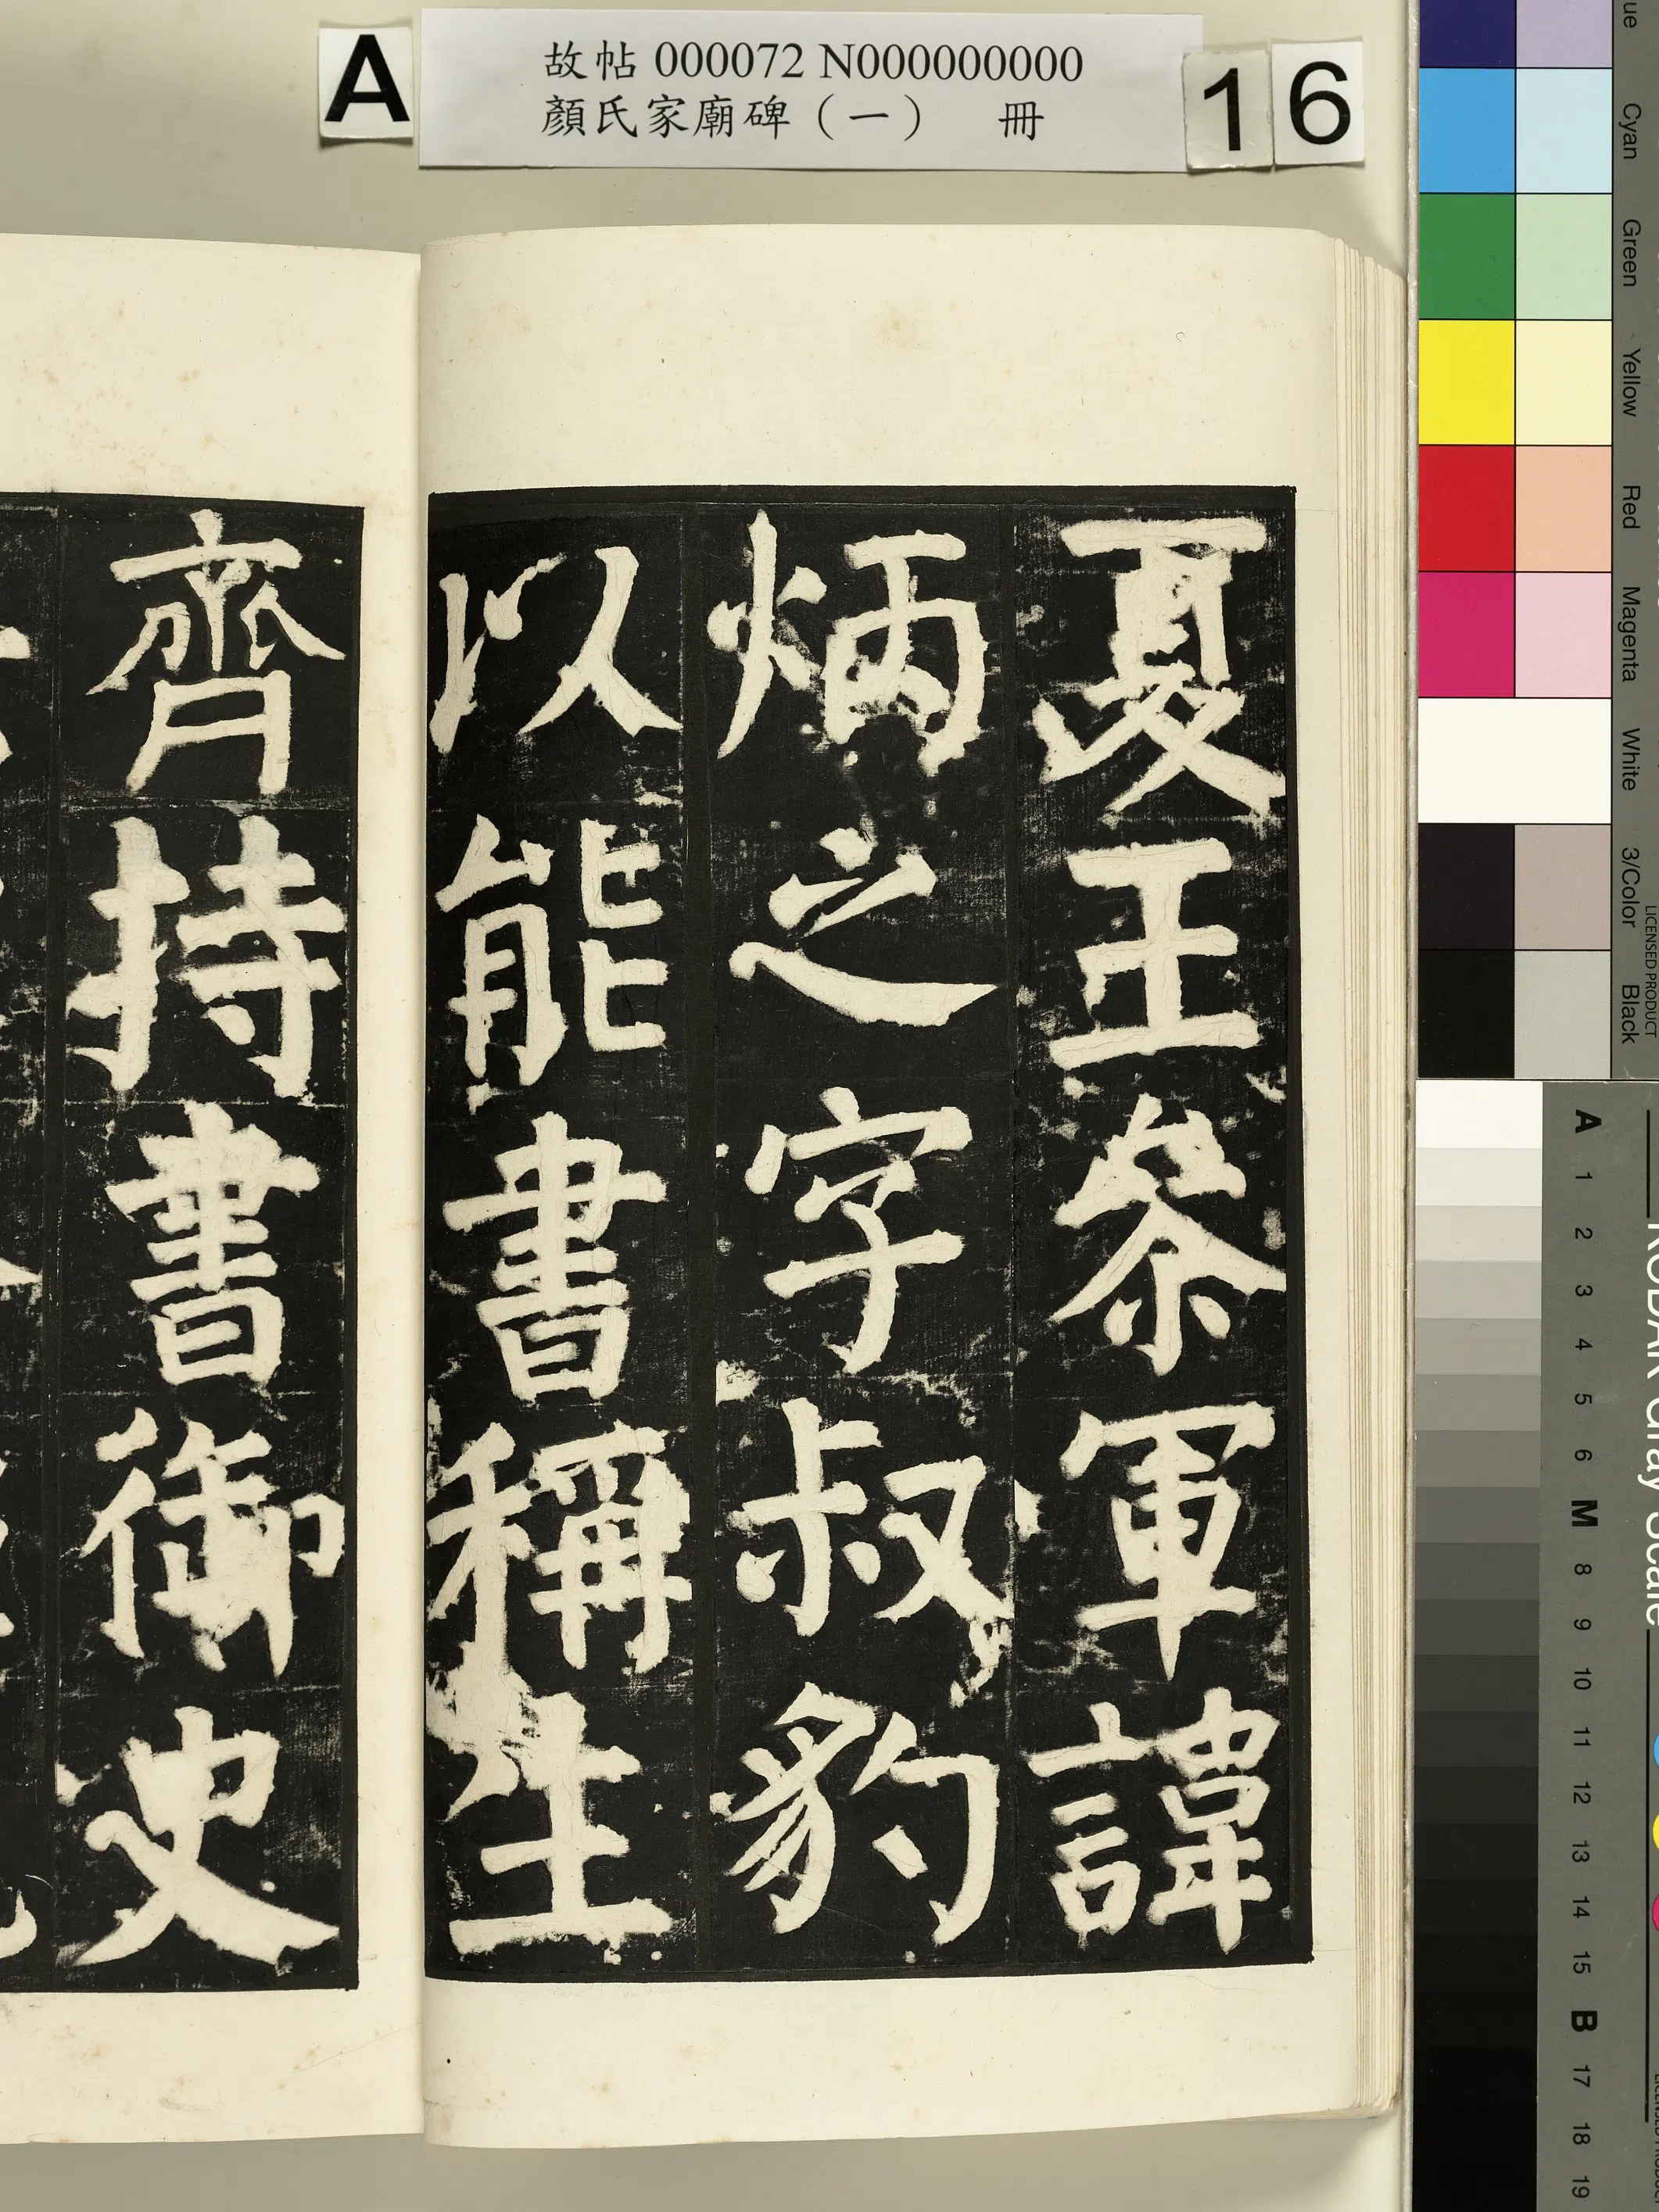 A
故帖 000072 N000000000
顏氏家廟碑（一） 冊
16
夏王叅軍諱
炳之字叔豹
以能書稱生
齊持書御史
Cyan
Green
Yellow
Red
Magenta
White
3/Color
Black
LICENSED PRODUCT
A 1 2 3 4 5 6 M 8 9 10 11 12 13 14 15 B 17 18 19
KODAK Gray Scale